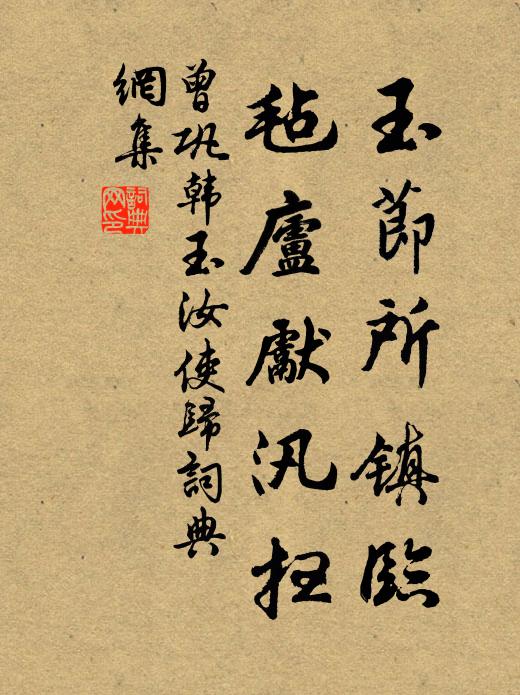 玉節所鎮臨
氊廬獻汛扫
曾巩韩玉汝使歸詞典
網集
詞典網印